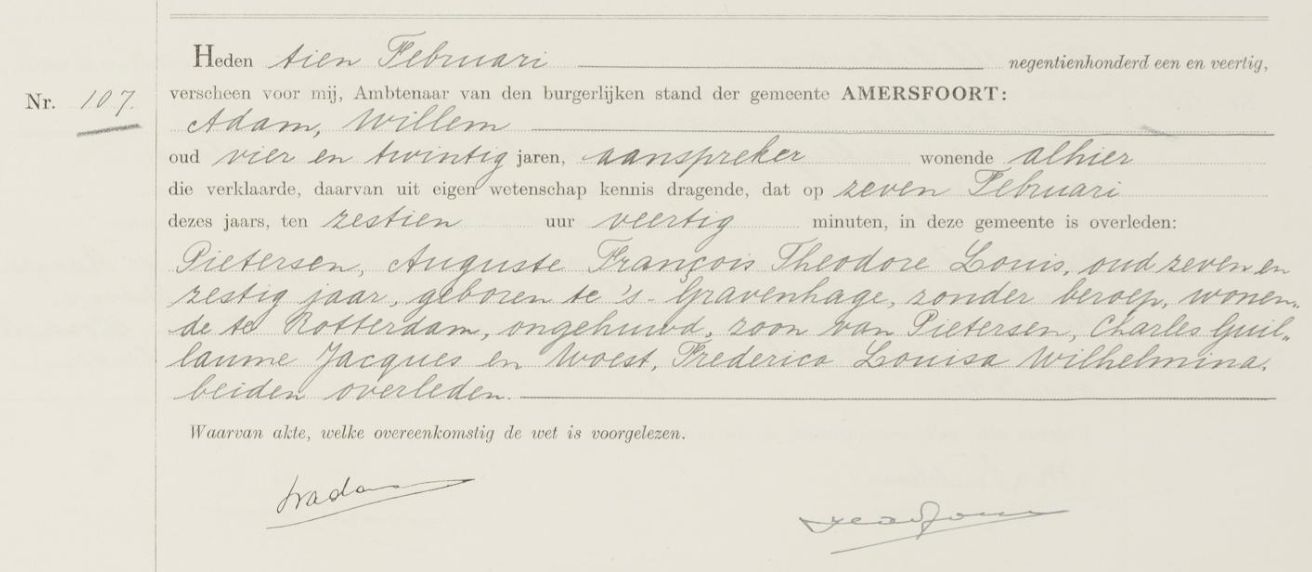 Heden tien Februari negentienhonderd een en veertig,
Nr. 107. verscheen voor mij, Ambtenaar van den burgerlijken stand der gemeente AMERSFOORT:
Adam, Willem
oud vier en twintig jaren, aanspreker wonende alhier
die verklaarde, daarvan uit eigen wetenschap kennis dragende, dat op zeven Februari
dezes jaars, ten zestien uur veertig minuten, in deze gemeente is overleden:
Pietersen, Auguste François Theodore Louis, oud zeven en
zestig jaar, geboren te 's-Gravenhage, zonder beroep, wonen-
de te Rotterdam, ongehuwd, zoon van Pietersen, Charles Guil-
laume Jacques en Woest, Frederica Louisa Wilhelmina,
beiden overleden.
Waarvan akte, welke overeenkomstig de wet is voorgelezen.